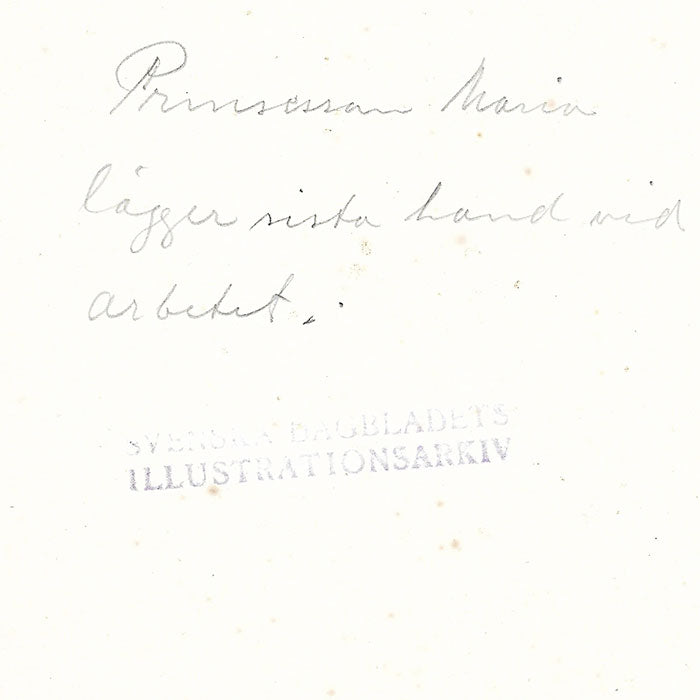 Prinsessan Maria
lägger sista hand vid
arbetet.
SVENSKA DAGBLADETS
ILLUSTRATIONSARKIV